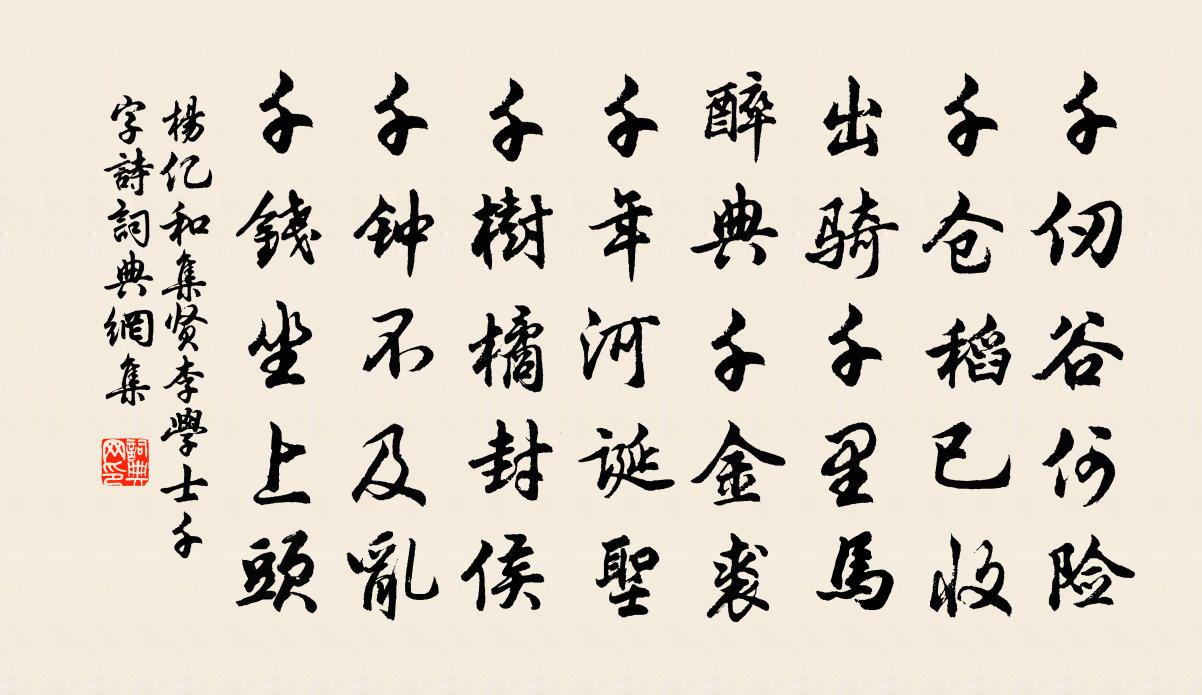 千仞谷何险
千仓稻已收
出骑千里馬
醉典千金裘
千年河誕聖
千樹橘封侯
千钟不及亂
千錢坐上頭
楊亿和集贤李學士千
字詩詞典網集
詞典网印